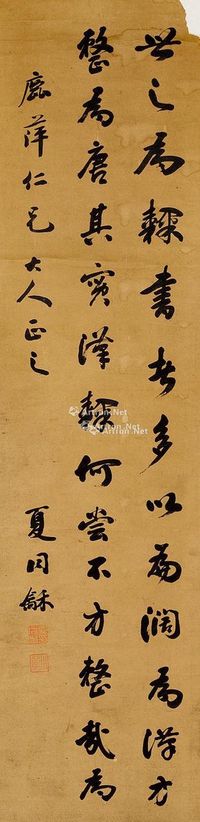 世之為隸書者多以扁濶為漢方
整為唐其實漢隸何嘗不方整哉為
鹿萍仁兄大人正之
夏同龢
Artron.Net
Artron.Net